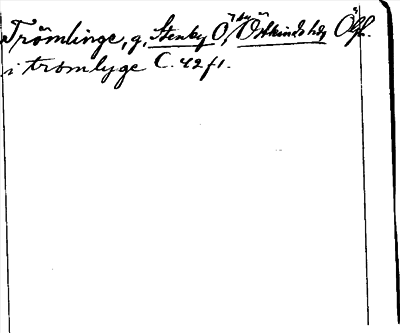 Trömlinge, g, Stenby Ö, by Östkinds hd, Ögl.
i tromlyge C. 42 f 1.